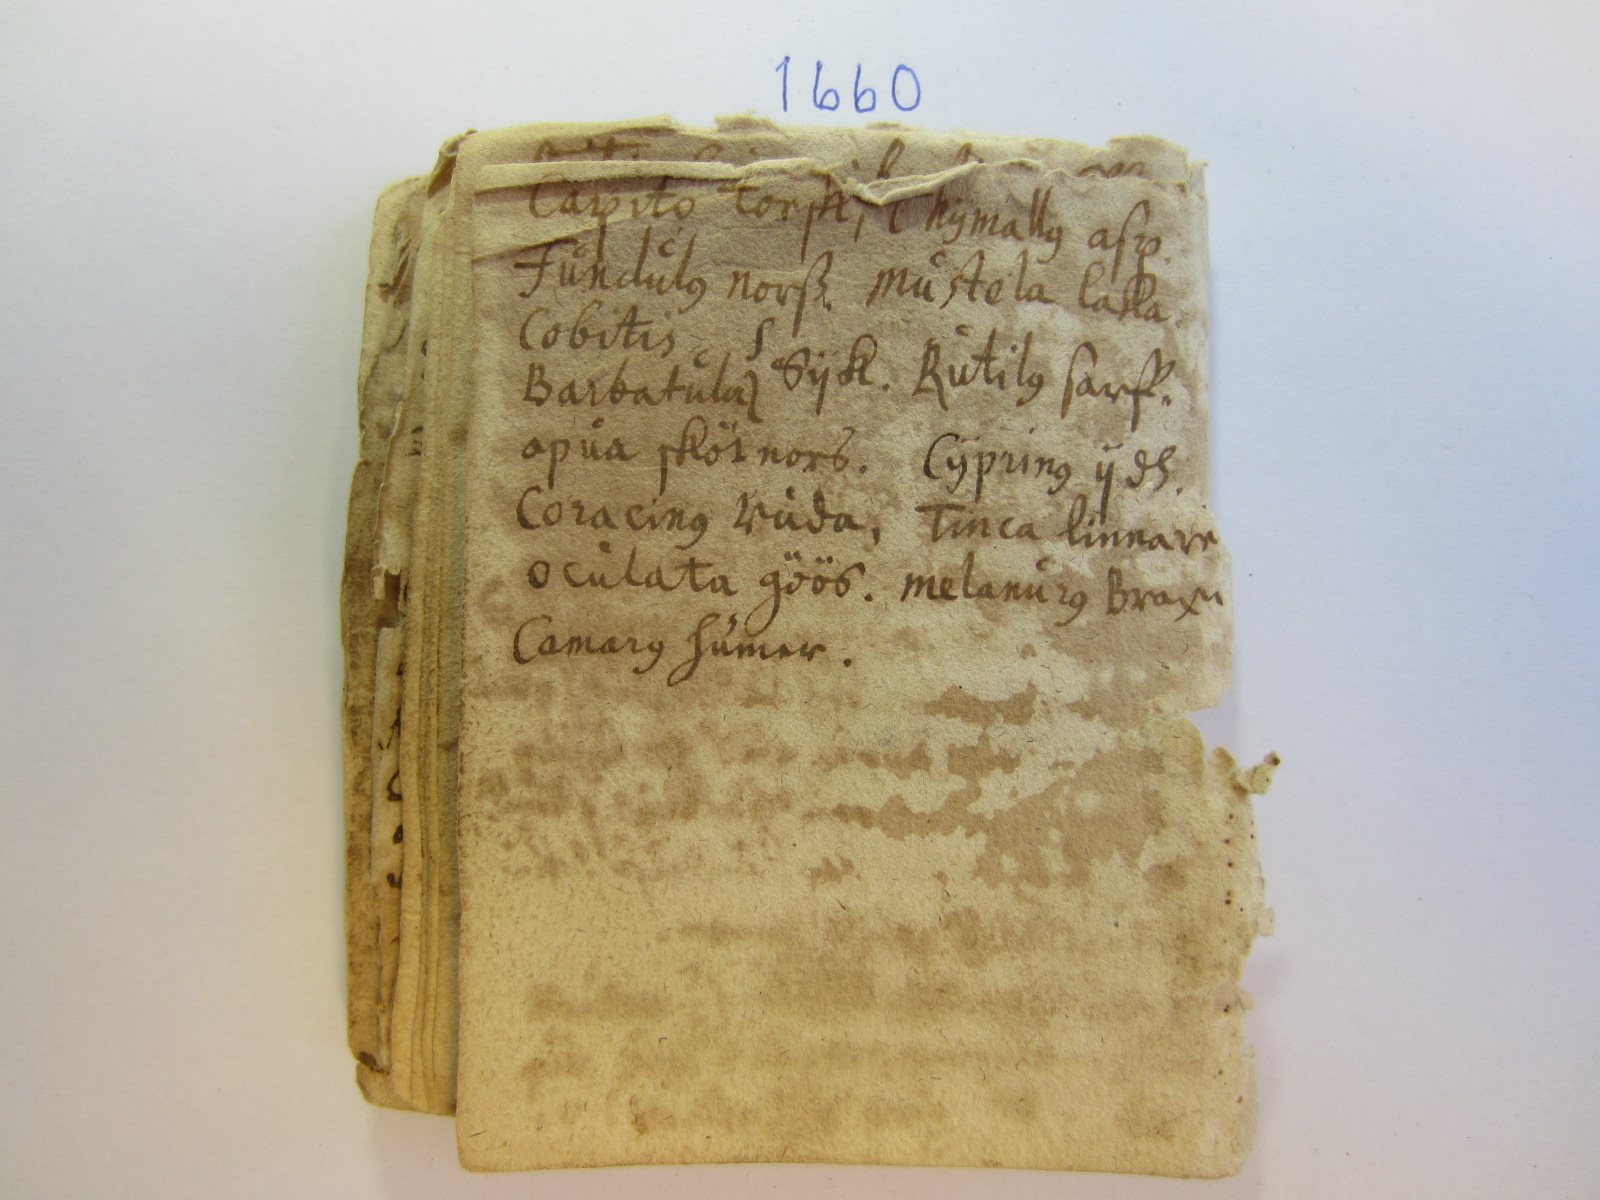 1660
Capito torsk, Thymallus asp.
Fundulus nors. mustela lacka.
Cobitis
Barbatula } Sijk. Rutilus sarf.
apua skötnors. Cyprinus ijdh.
Coracinus Ruda, Tinca linnare
oculata göös. melanurus Braxn
Camarus humer.